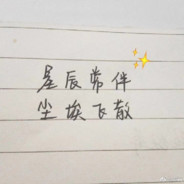 星辰常伴
尘埃飞散